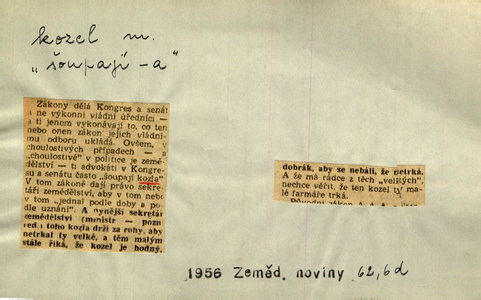 kozel m.
„šoupají -a"
Zákony dělá Kongres a senát
a ne výkonní vládní úředníci —
a ti jenom vykonávají to, co ten
nebo onen zákon jejich vládní-
mu odboru ukládá. Ovšem, v
choulostivých případech — a
„choulostivé" v politice je země-
dělství — ti advokáti v Kongre-
su a senátu často „šoupají kozla".
V tom zákoně dají právo sekre-
táři zemědělství, aby v tom nebo
v tom „jednal podle doby a po-
dle uznání". A nynější sekretář
zemědělství (ministr — pozn.
red.) toho kozla drží za rohy, aby
netrkal ty velké, a těm malým
stále říká, že kozel je hodný,
dobrák, aby se nebáli, že netrká.
A že má rádce z těch „velkých",
nechce věřit, že ten kozel ty ma-
lé farmáře trká.
1956 Zeměd. noviny 62,6d